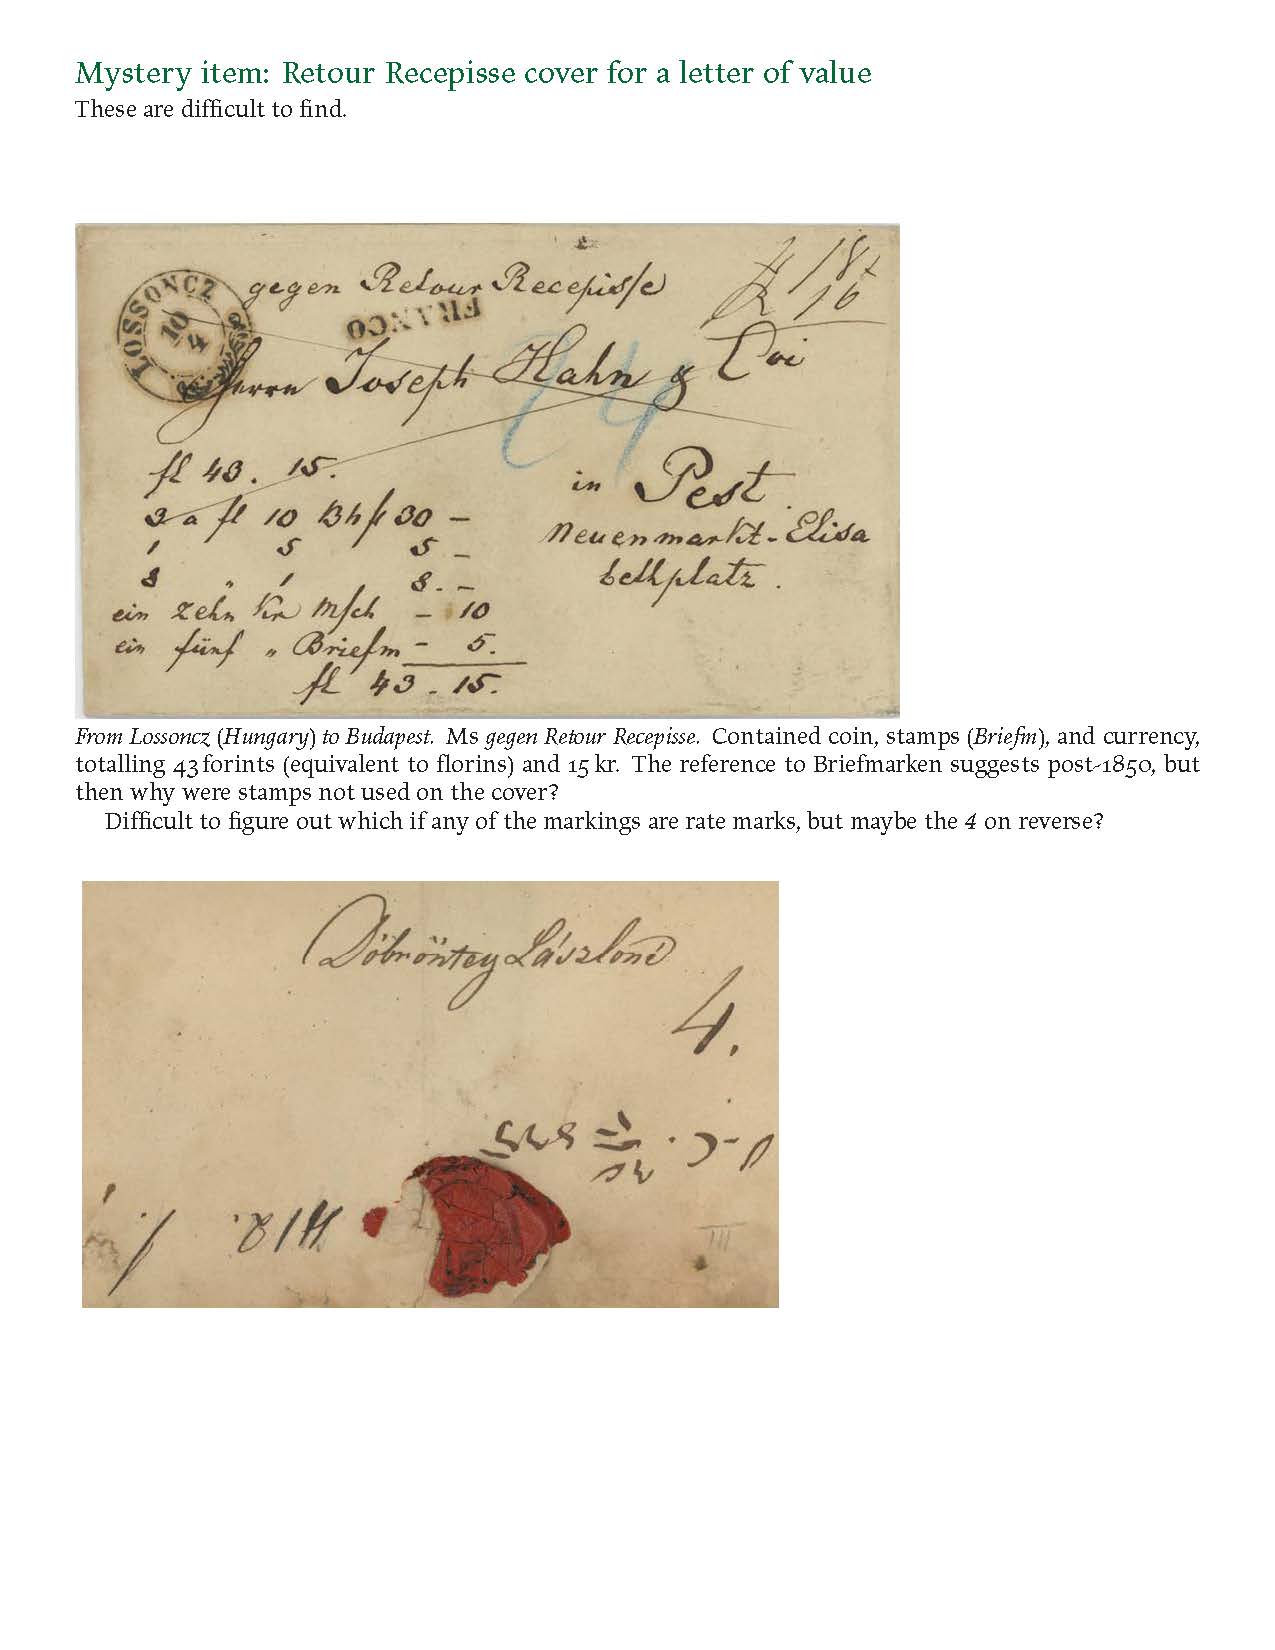 Mystery item: Retour Recepisse cover for a letter of value
These are difficult to find.
LOSSONCZ
10
4
gegen Retour Recepisse
18
16
FRANCO
Herrn Joseph Hahn &
24
fl 43. 15.
in Pest.
3 a fl 10 30 —
Neuenmarkt - Elisa
1 5 5 —
bethplatz.
8 " 1 8. —
ein zehn Kr - 10
ein fünf " Briefm - 5.
fl 43 - 15.
From Lossoncz (Hungary) to Budapest. Ms gegen Retour Recepisse. Contained coin, stamps (Briefm), and currency,
totalling 43 forints (equivalent to florins) and 15 kr. The reference to Briefmarken suggests post-1850, but
then why were stamps not used on the cover?
Difficult to figure out which if any of the markings are rate marks, but maybe the 4 on reverse?
Döbröntey Lászloné
4.
III